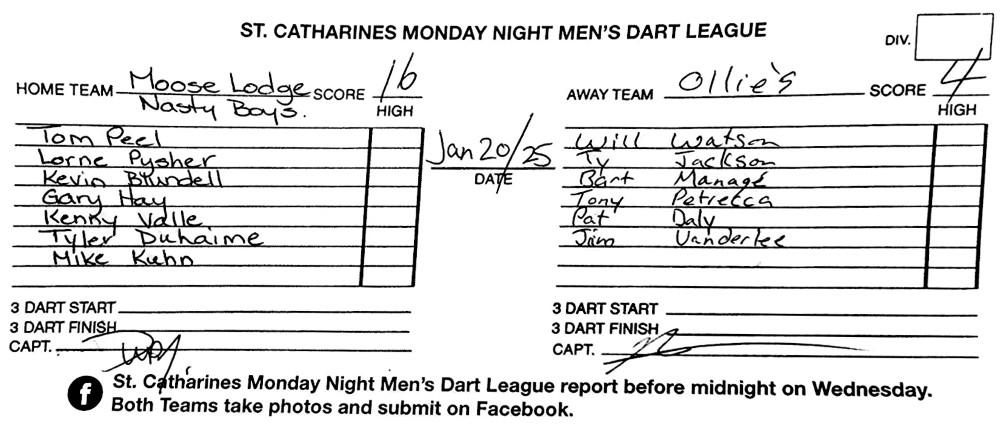 ST. CATHARINES MONDAY NIGHT MEN'S DART LEAGUE
DIV.
HOME TEAM Moose Lodge Nasty Boys. SCORE 16
HIGH
AWAY TEAM Ollie's SCORE 4
HIGH
Tom Peel
Lorne Pysher
Kevin Blundell
Gary Hay
Kenny Valle
Tyler Duhaime
Mike Kuhn
Jan 20/25
DATE
Will Watson
Ty Jackson
Bart Manage
Tony Petrecca
Pat Daly
Jim Vanderlee
3 DART START
3 DART FINISH
CAPT.
3 DART START
3 DART FINISH
CAPT.
St. Catharines Monday Night Men's Dart League report before midnight on Wednesday.
Both Teams take photos and submit on Facebook.